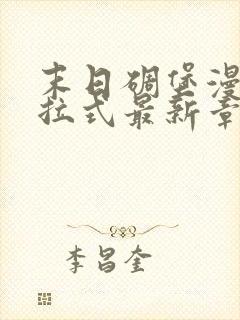 末日碉堡漫
拉式最新章
李昌奎